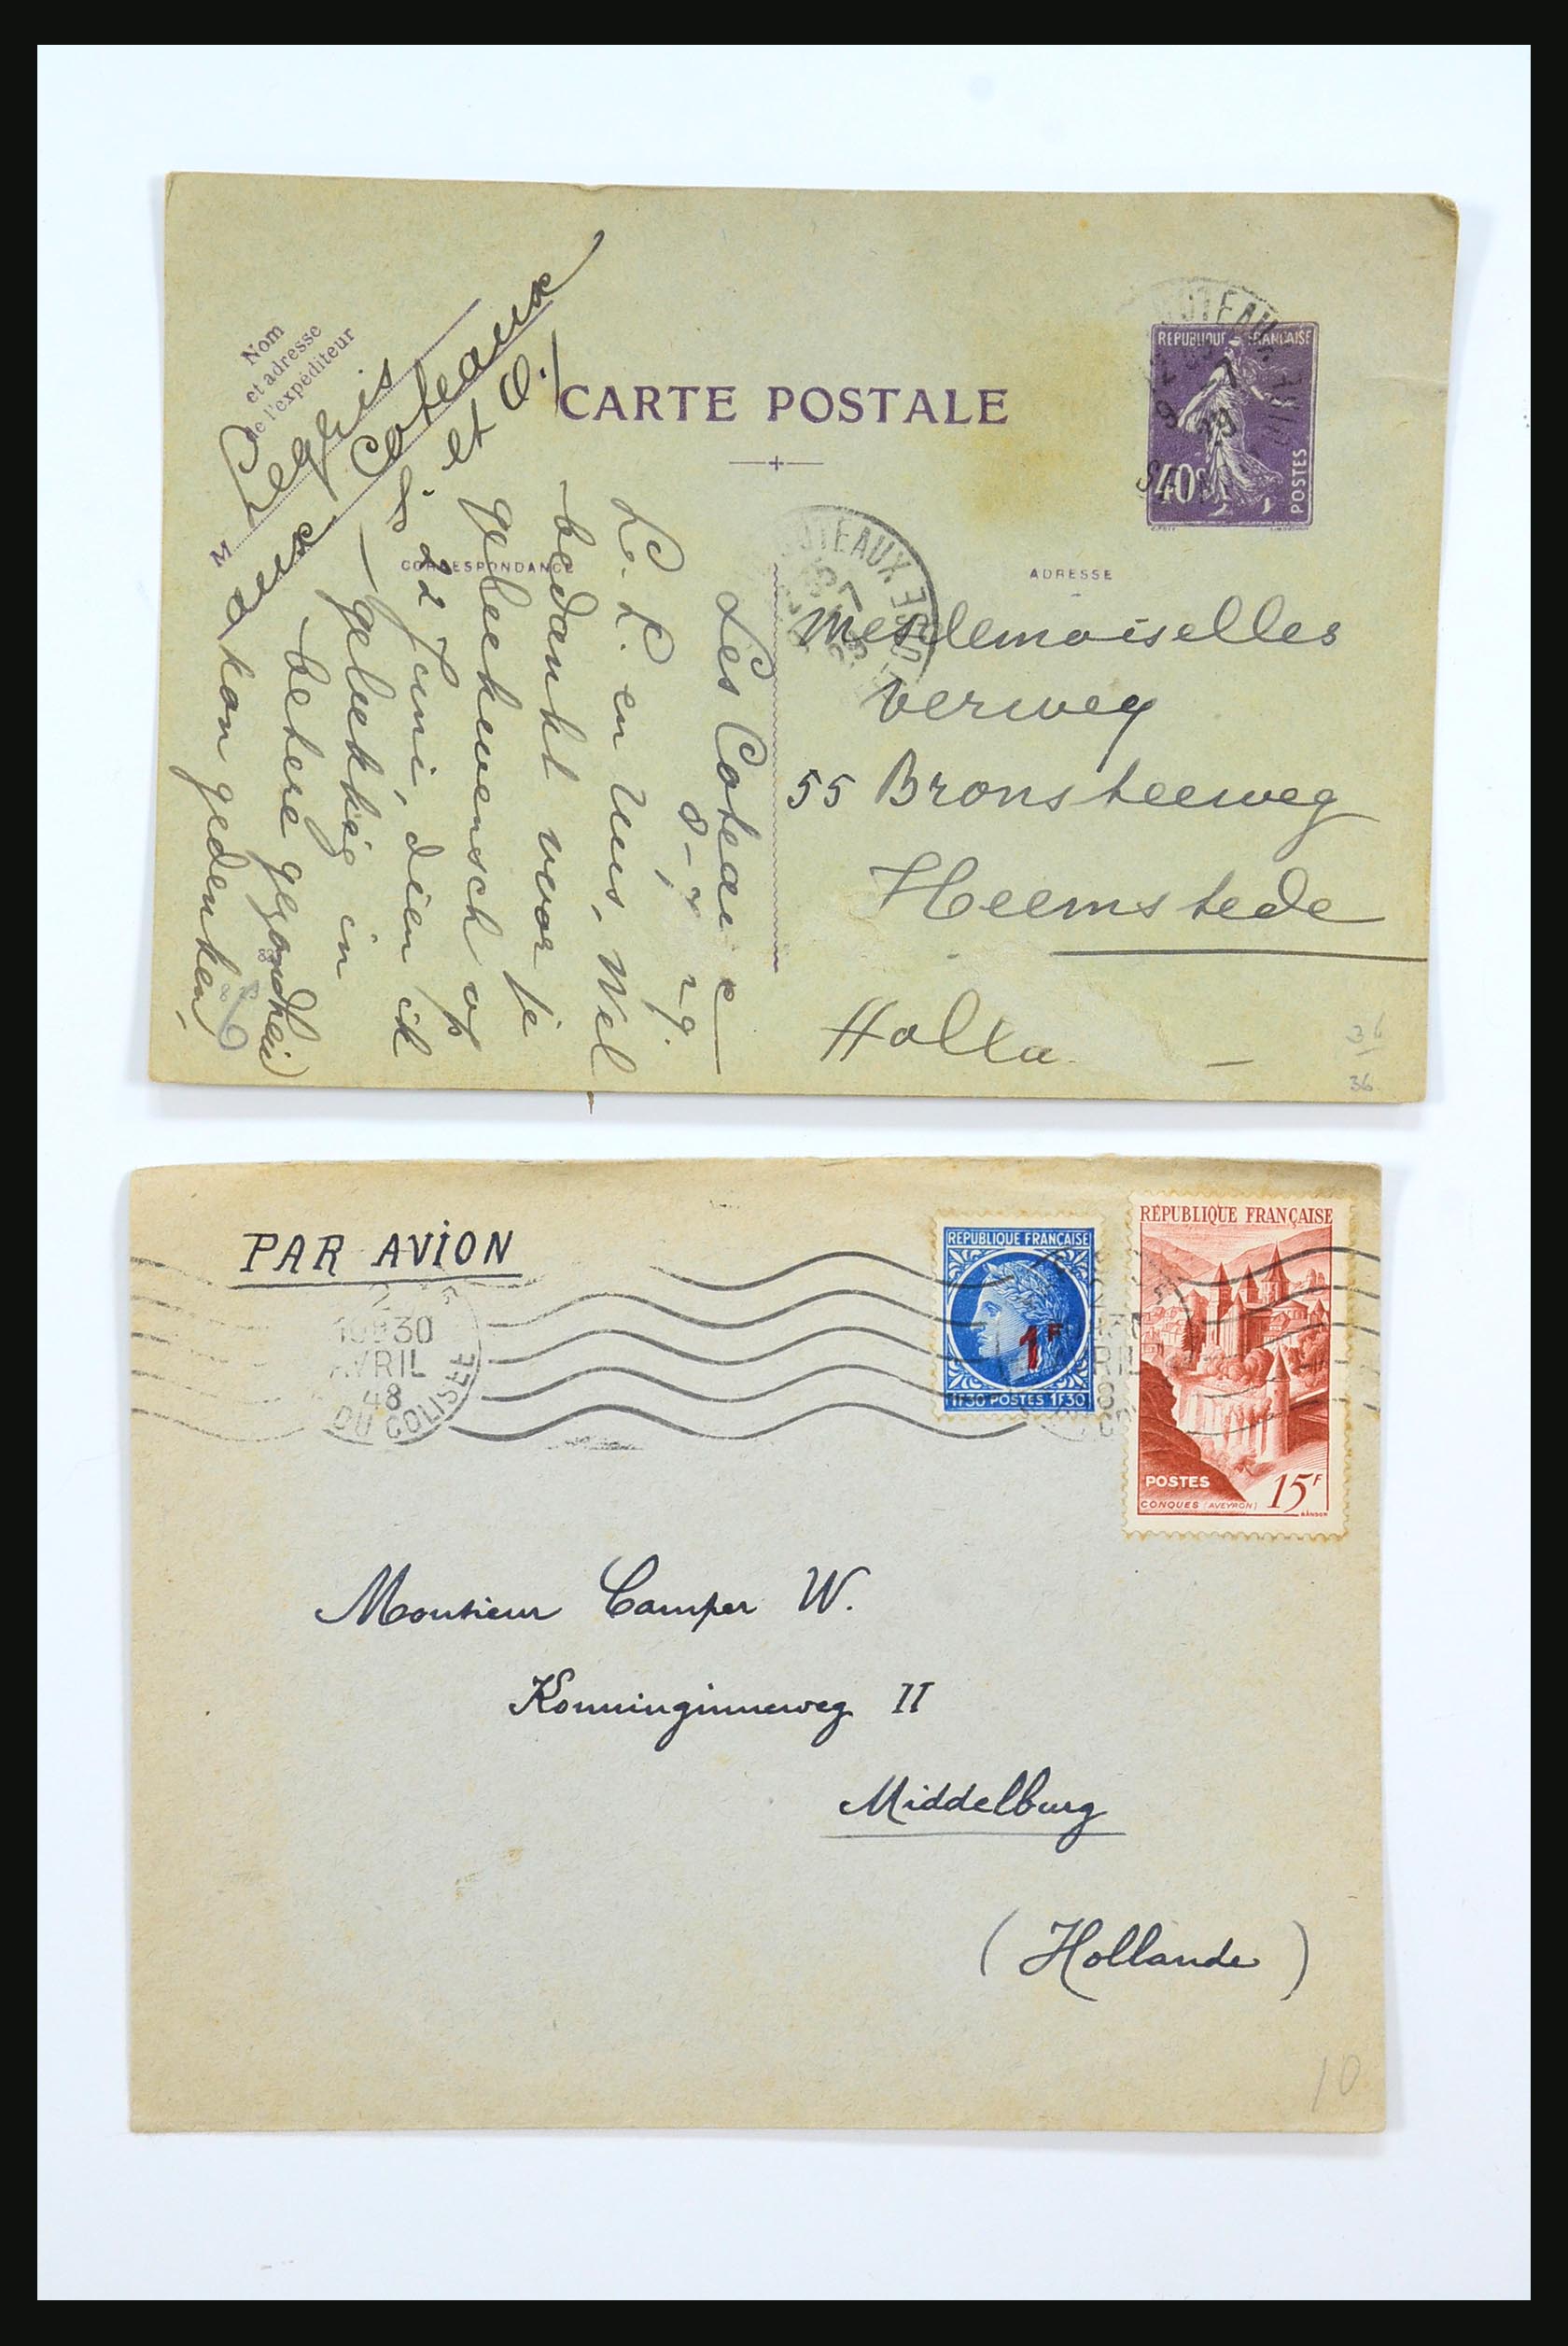 Nom
et adresse
de l'expéditeur
M Leglis
aux Coteaux
S. et O.
CARTE POSTALE
REPUBLIQUE FRANÇAISE
40c
POSTES
PUTEAUX
CORRESPONDANCE
ADRESSE
Les Coteaux
8-7-29.
L. L. en Uus. Wel
bedankt voor je
gelukwensch op
22 Juni, dien ik
gelukkig in
betere gezondheid
kon gedenken,
Mesdemoiselles
Verweg
55 Bronsteeweg
Heemstede
Holla
36
36
PAR AVION
REPUBLIQUE FRANÇAISE
1F
1F30 POSTES 1F30
RÉPUBLIQUE FRANÇAISE
POSTES
15F
CONQUES (AVEYRON)
GANDON
30
AVRIL
48
DU COLISEE
Monsieur Camper W.
Konninginneweg II
Middelburg
(Hollande)
10